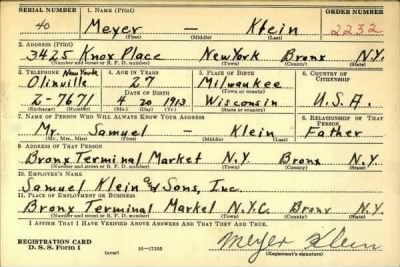 SERIAL NUMBER 1. NAME (Print) ORDER NUMBER
40 Meyer — Klein 2232
(First) (Middle) (Last)
2. ADDRESS (Print)
3425 Knox Place New York Bronx N.Y.
(Number and street or R. F. D. number) (Town) (County) (State)
3. TELEPHONE New York 4. AGE IN YEARS 5. PLACE OF BIRTH 6. COUNTRY OF CITIZENSHIP
Olinville 27 Milwaukee
DATE OF BIRTH (Town or county)
2-7671 4 20 1913 Wisconsin U.S.A.
(Exchange) (Number) (Mo.) (Day) (Yr.) (State or country)
7. NAME OF PERSON WHO WILL ALWAYS KNOW YOUR ADDRESS 8. RELATIONSHIP OF THAT PERSON
Mr. Samuel — Klein Father
(Mr., Mrs., Miss) (First) (Middle) (Last)
9. ADDRESS OF THAT PERSON
Bronx Terminal Market N.Y. Bronx N.Y.
(Number and street or R. F. D. number) (Town) (County) (State)
10. EMPLOYER'S NAME
Samuel Klein and Sons, Inc.
11. PLACE OF EMPLOYMENT OR BUSINESS
Bronx Terminal Market N.Y.C. Bronx N.Y.
(Number and street or R. F. D. number) (Town) (County) (State)
I AFFIRM THAT I HAVE VERIFIED ABOVE ANSWERS AND THAT THEY ARE TRUE.
REGISTRATION CARD
D. S. S. Form 1 (over) 16-17105 Meyer Klein
(Registrant's signature)